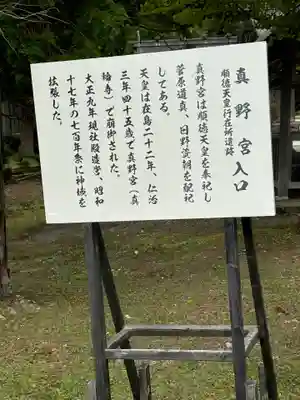 真野宮入口
順徳天皇行在所遺跡
真野宮は順徳天皇を奉祀し
菅原道真、日野資朝を配祀
してある。
天皇は在島二十二年、仁治
三年四十五歳で真野宮（真
輪寺）で崩御された。
大正九年現社殿造営、昭和
十七年の七百年祭に神域を
拡張した。